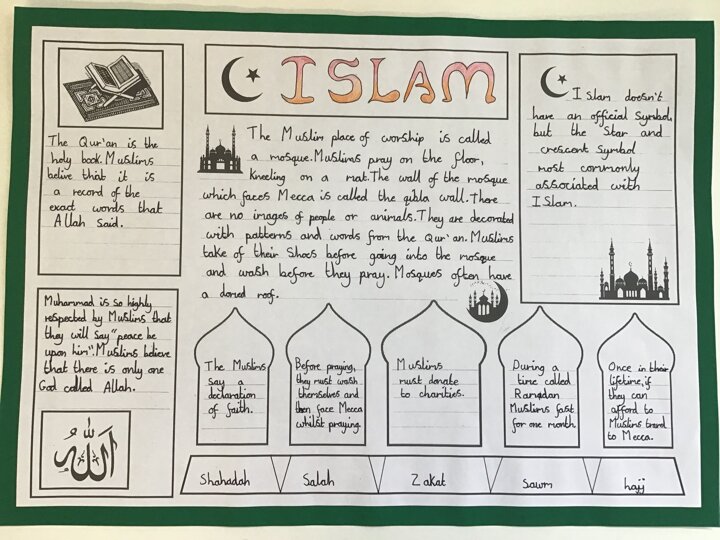 ISLAM
The Qur'an is the
holy book. Muslims
belive that it is
a record of the
exact words that
Allah Said.
The Muslim place of worship is called
a mosque. Muslims pray on the floor,
kneeling on a mat. The wall of the mosque
which faces Mecca is called the qibla wall. There
are no images of people or animals. They are decorated
with patterns and words from the Qur'an. Muslims
take of their Shoes before going into the mosque
and wash before they pray. Mosques often have
a domed roof.
Islam doesn't
have an official Symbol,
but the Star and
crescent Symbol
most commonly
associated with
Islam.
Muhammad is so highly
respected by Muslims that
they will say "peace be
upon him". Muslims believe
that there is only one
God called Allah.
الله
The Muslims
say a
declaration
of faith.
Before praying,
they must wash
themselves and
then face Mecca
whilst praying.
Muslims
must donate
to charities.
During a
time called
Ramadan
Muslims fast
for one month.
Once in their
lifetime, if
they can
afford to
Muslims travel
to Mecca.
Shahadah
Salah
Zakat
Sawm
hajj